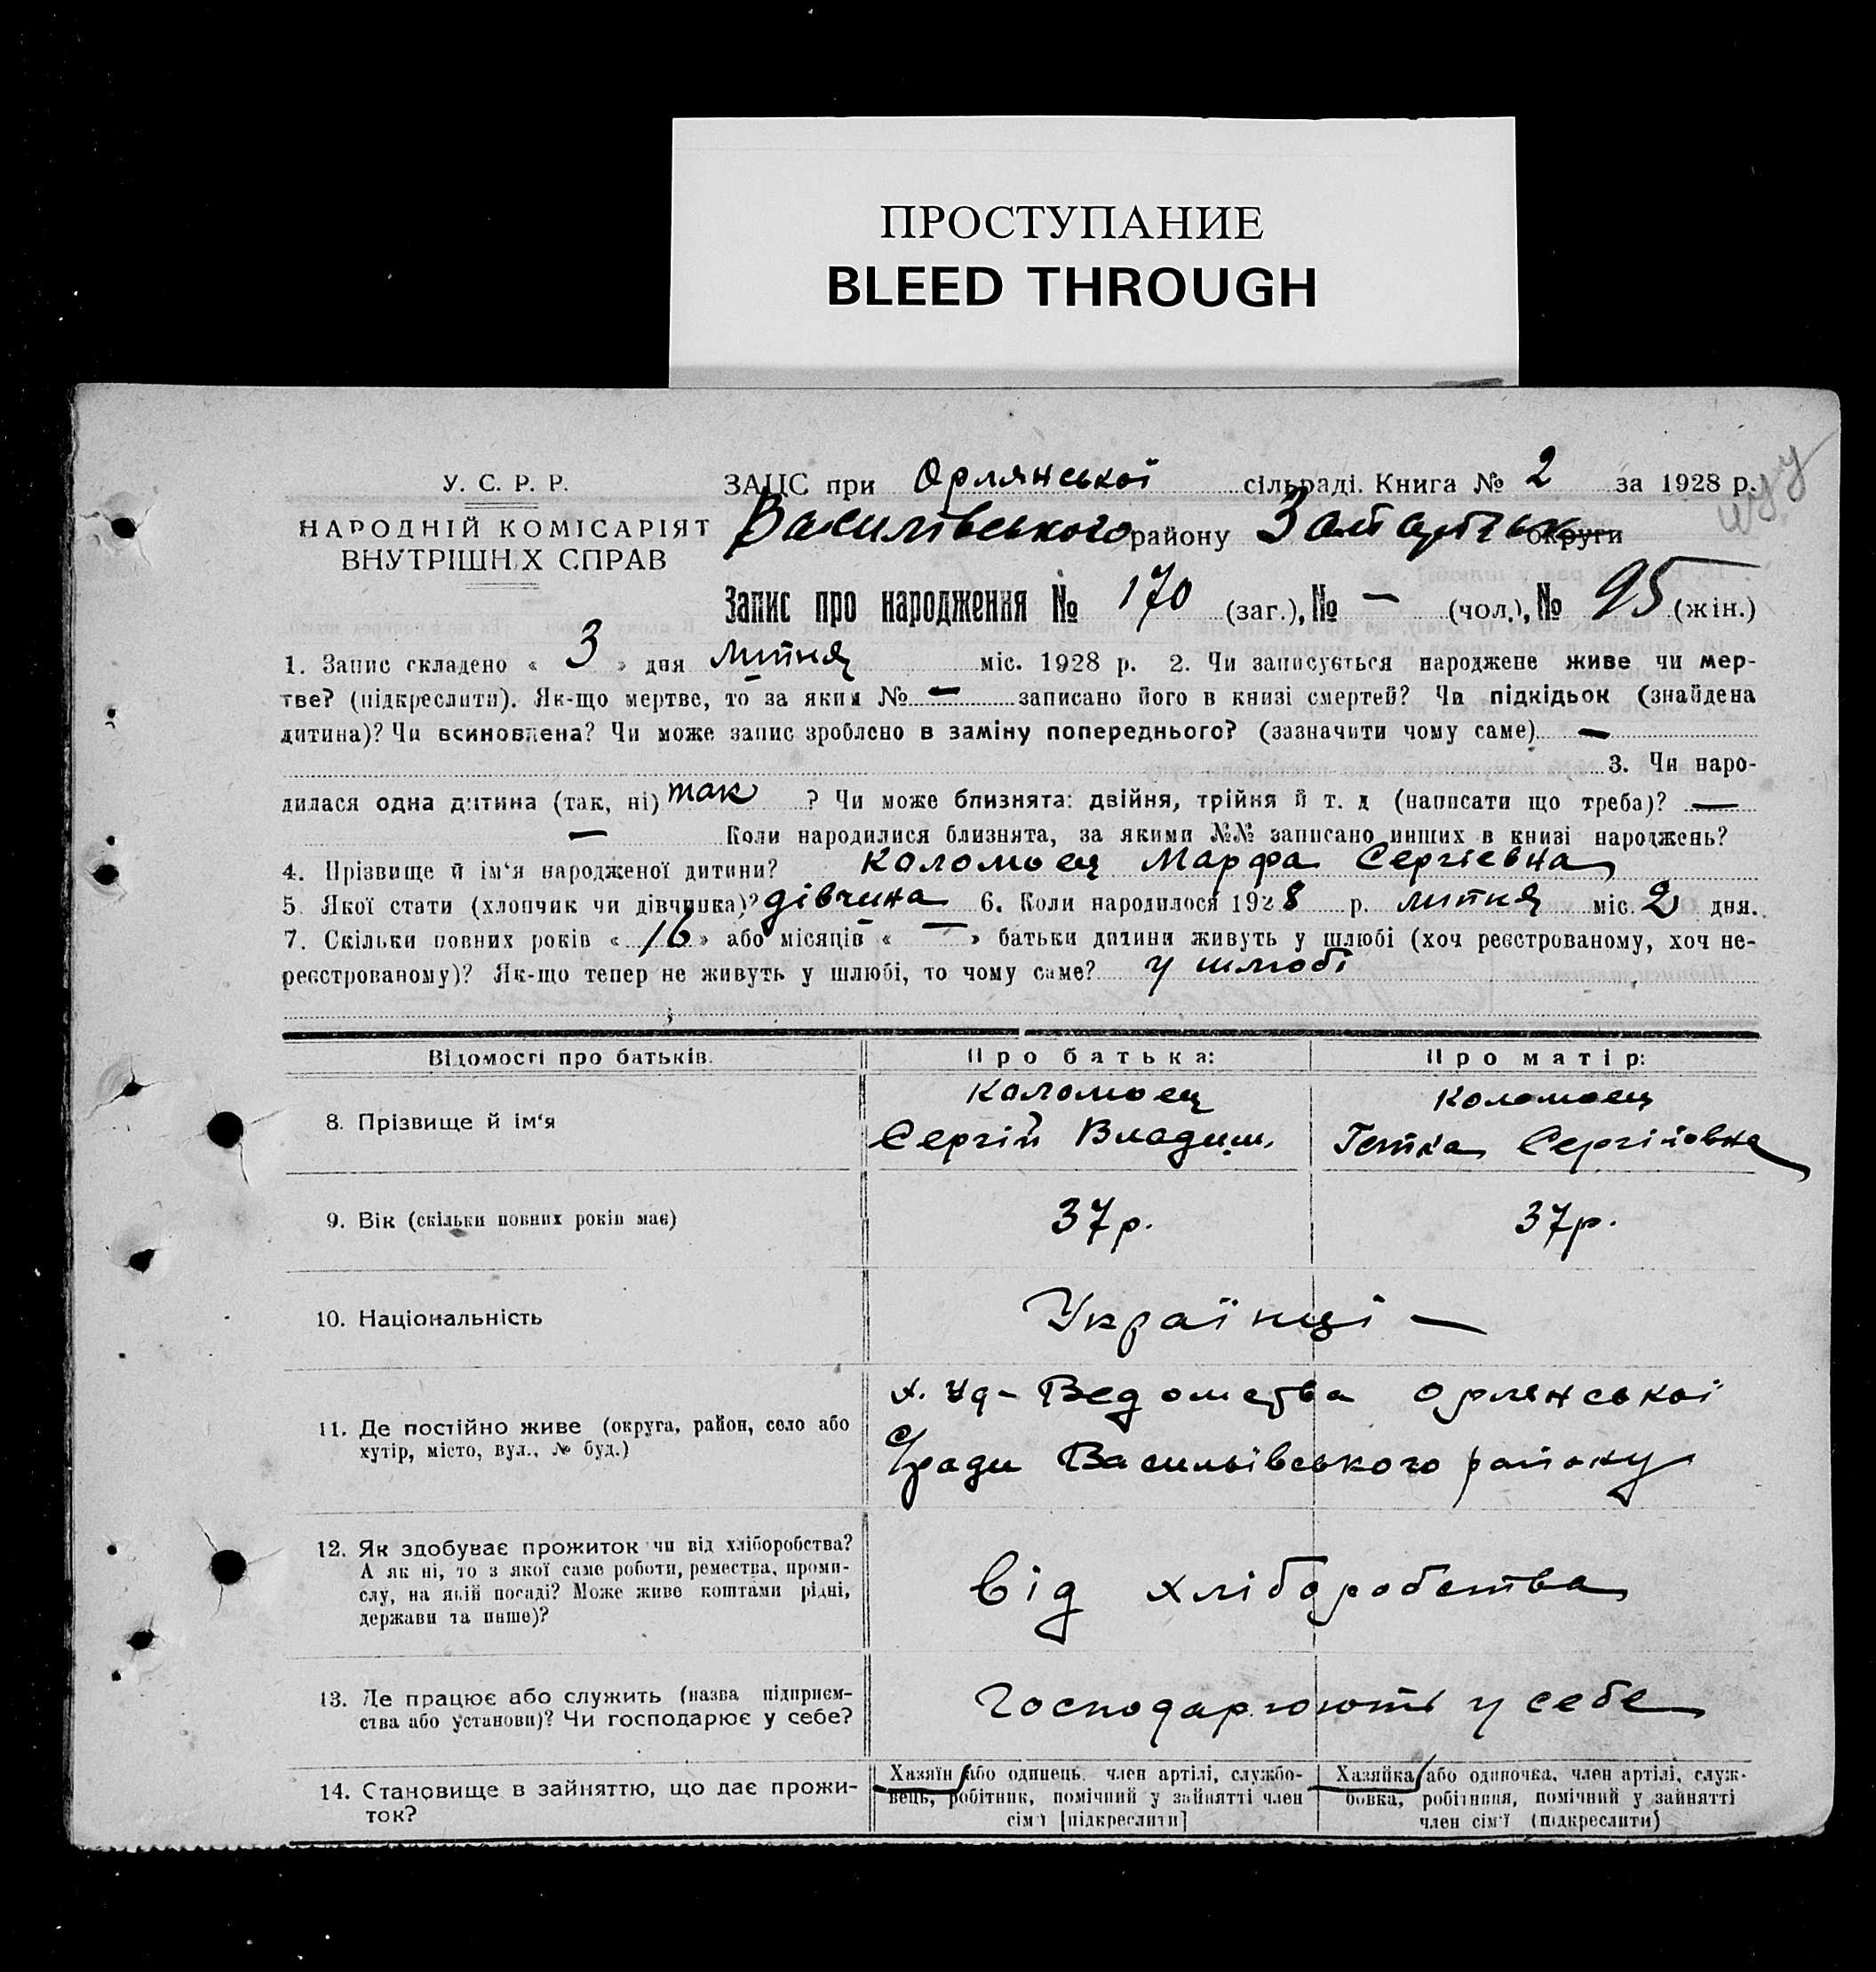 ПРОСТУПАНИЕ
BLEED THROUGH
У. С. Р. Р.
НАРОДНІЙ КОМІСАРІЯТ
ВНУТРІШНІХ СПРАВ
ЗАЦС при Орлянської сільраді. Книга № 2 за 1928 р.
Василівського району округи
Запис про народження № 170 (заг.), № — (чол.), № 95 (жін.)
1. Запис складено « 3 » дня липня міс. 1928 р. 2. Чи записується народжене живе чи мер-
тве? (підкреслити). Як-що мертве, то за яким № — записано його в книзі смертей? Чи підкідьок (знайдена
дитина)? Чи всиновлена? Чи може запис зроблено в заміну попереднього? (зазначити чому саме) —
3. Чи наро-
дилася одна дитина (так, ні) так ? Чи може близнята: двійня, трійня й т. д (написати що треба)? —
— Коли народилися близнята, за якими №№ записано инших в книзі народжень?
4. Прізвище й ім'я народженої дитини? Коломоец Марфа Сергіевна
5. Якої стати (хлопчик чи дівчинка)? дівчина 6. Коли народилося 1928 р. липня міс. 2 дня.
7. Скільки повних років « 16 » або місяців « — » батьки дитини живуть у шлюбі (хоч реєстрованому, хоч не-
реєстрованому)? Як-що тепер не живуть у шлюбі, то чому саме? у шлюбі
Відомості про батьків.
Про батька:
Про матір:
8. Прізвище й ім'я
Коломоец
Сергій Владим.
Коломоец
Сергіївна
9. Вік (скільки повних років має)
37 р.
37 р.
10. Національність
Українці —
11. Де постійно живе (округа, район, село або
хутір, місто, вул., № буд.)
Орлянської
с/ради Васильівського району
12. Як здобуває прожиток чи від хліборобства?
А як ні, то з якої саме роботи, ремества, проми-
слу, на якій посаді? Може живе коштами рідні,
держави та инше)?
від хліборобства
13. Де працює або служить (назва підприєм-
ства або установи)? Чи господарює у себе?
Господарюють у себе
14. Становище в зайняттю, що дає прожи-
ток?
Хазяїн або одинець, член артілі, службо-
вець, робітник, помічний у зайнятті член
сім'ї [підкреслити]
Хазяйка або одиночка, член артілі, служ-
бовка, робітниця, помічний у зайнятті
член сім'ї (підкреслити)